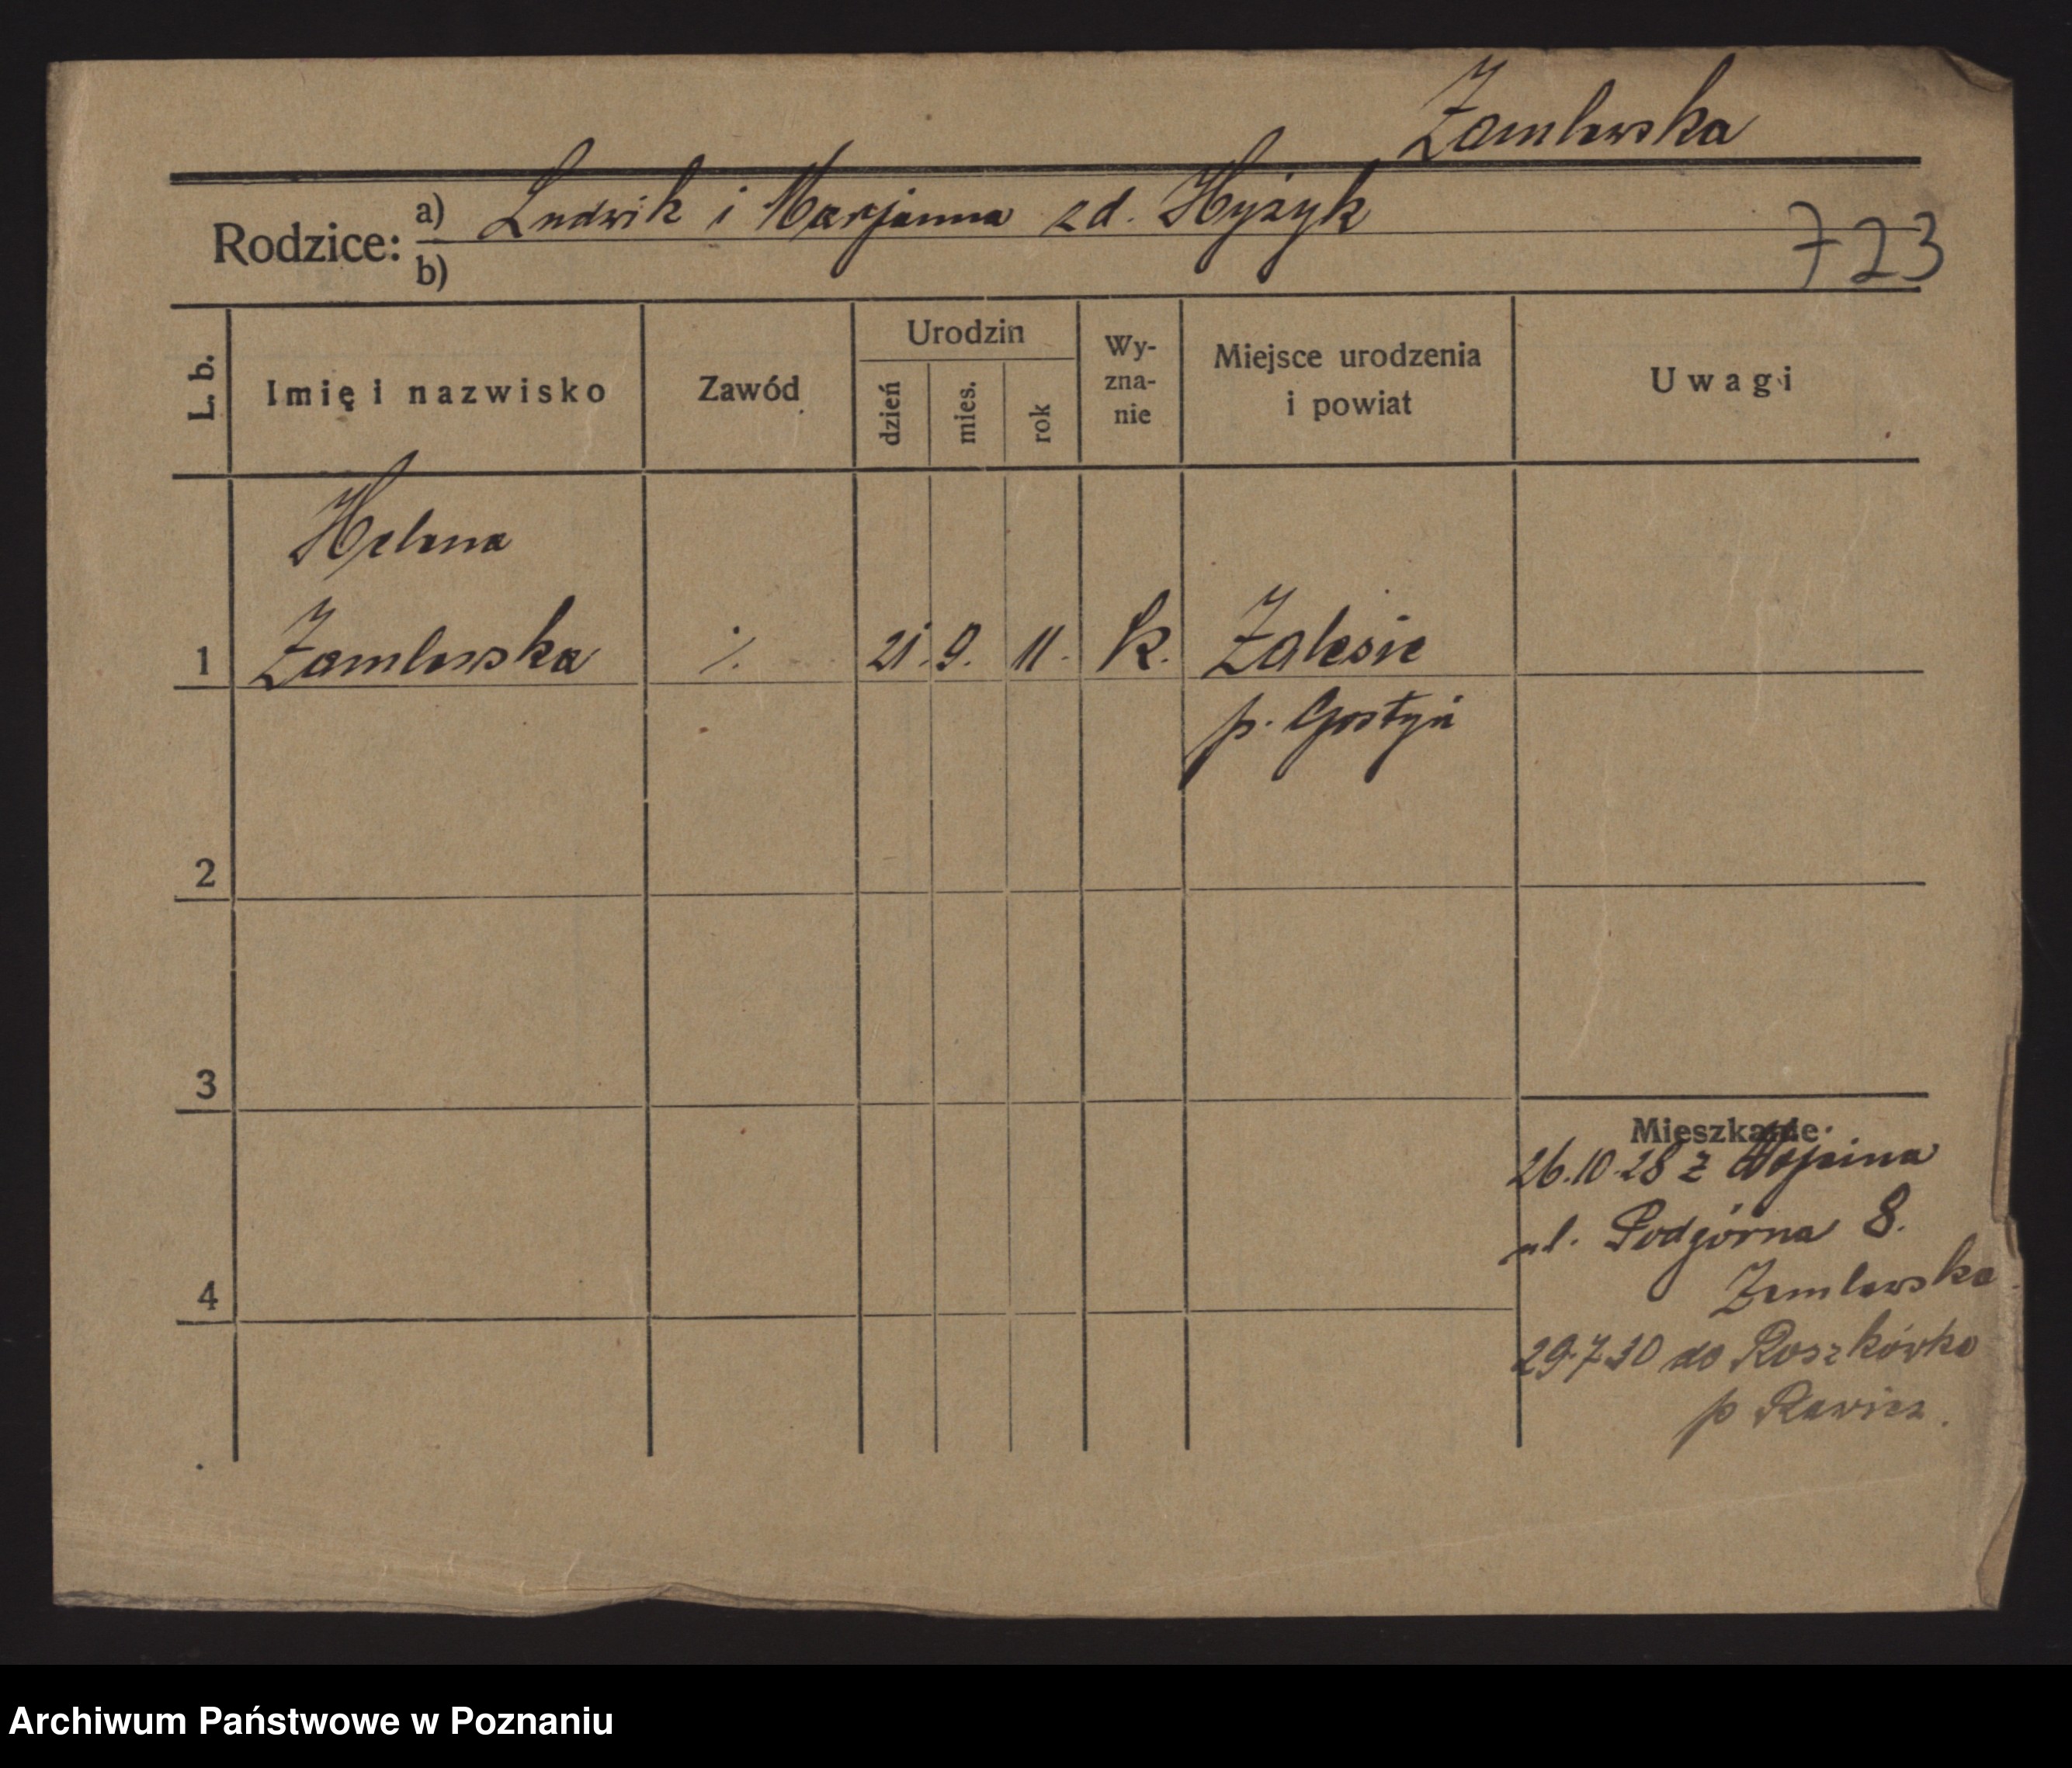 Zamlewska
Rodzice: a) Ludwik i Marjanna z d. Hyżyk
b)
723
L. b. Imię i nazwisko Zawód Urodzin dzień mies. rok Wy-zna-nie Miejsce urodzenia i powiat Uwagi
Helena
1 Zamlewska ./. 21. 9. 11. k. Zalesie
p. Gostyń
2
3
Mieszkanie
26.10.28 z
ul. Podgórna 8.
4 Zemlewska
29.7.30 do Roszkówko
p Rawicz.
Archiwum Państwowe w Poznaniu